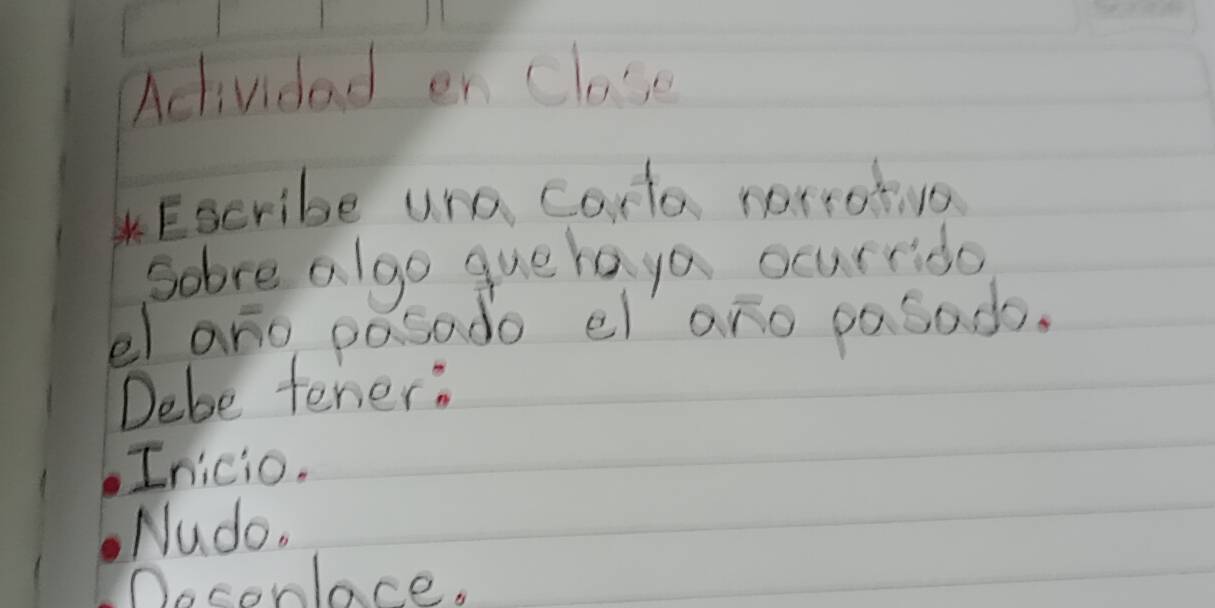 Actividad en Clase
*Escribe una carta narrativa
Sobre algo que haya ocurrido
el año pasado el año pasado.
Debe tener:
•Inicio.
•Nudo.
•Desenlace.